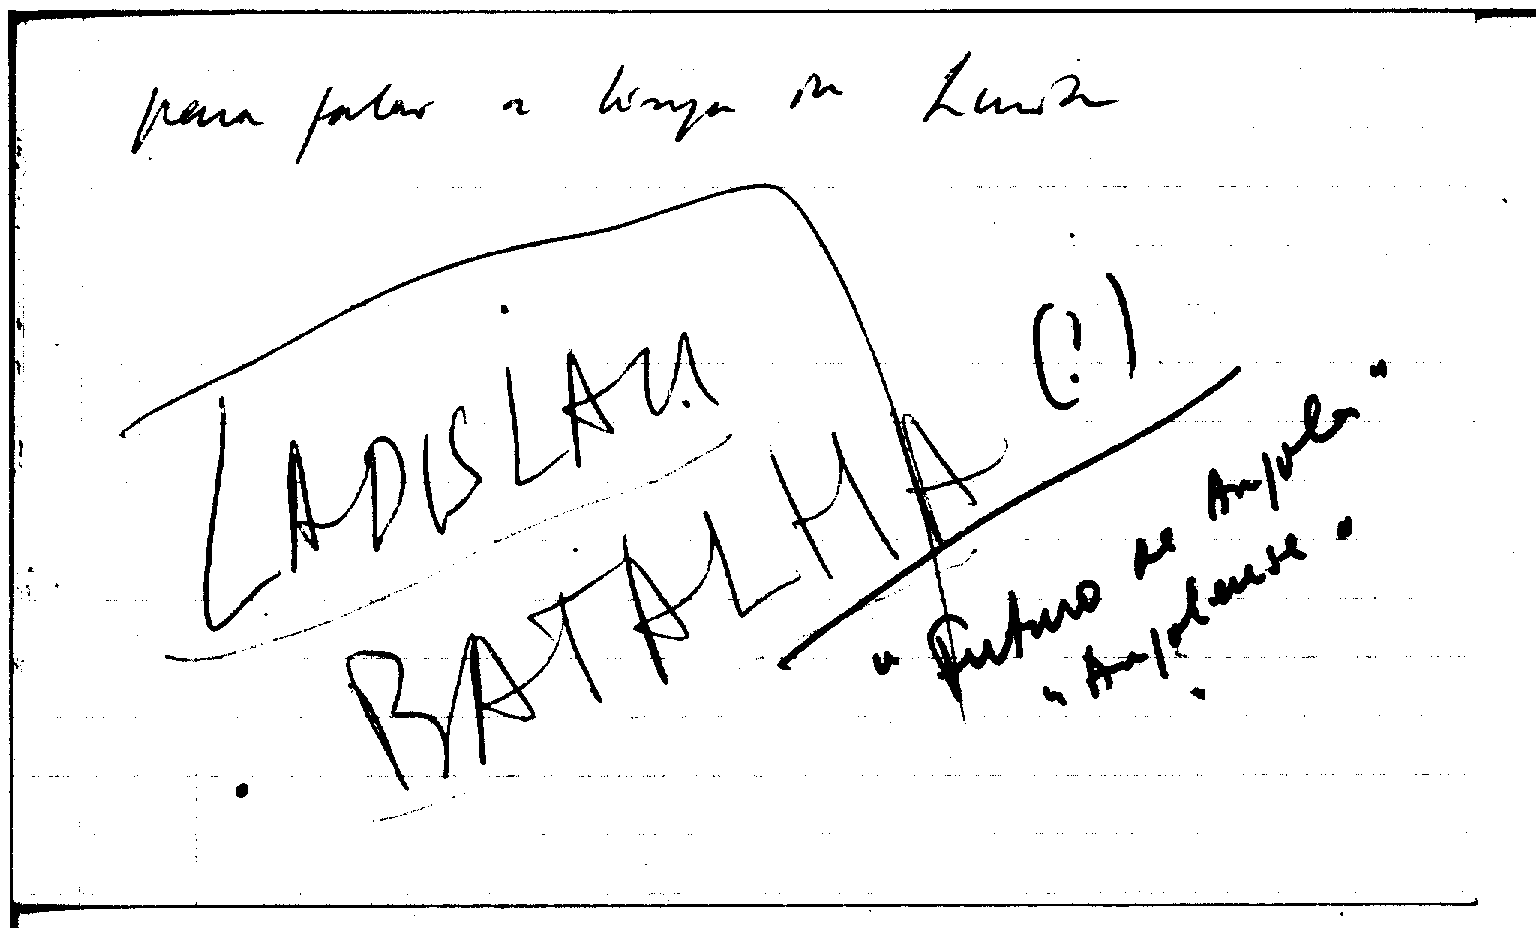 para falar a língua de Luanda
LADISLAU
BATALHA (?)
"Futuro de Angola"
"Angolense"